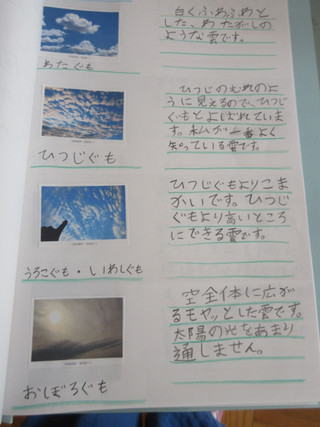 白くふわふわと
した、わたがしの
ような雲です。
わたぐも
ひつじのむれのよ
うに見えるので、ひつじ
ぐもとよばれています。
私が一番よく
知っている雲です。
ひつじぐも
ひつじぐもよりこま
かいです。ひつじ
ぐもより高いところ
にできる雲です。
うろこぐも・いわしぐも
空全体に広が
るモヤッとした雲です。
太陽の光をあまり
通しません。
おぼろぐも